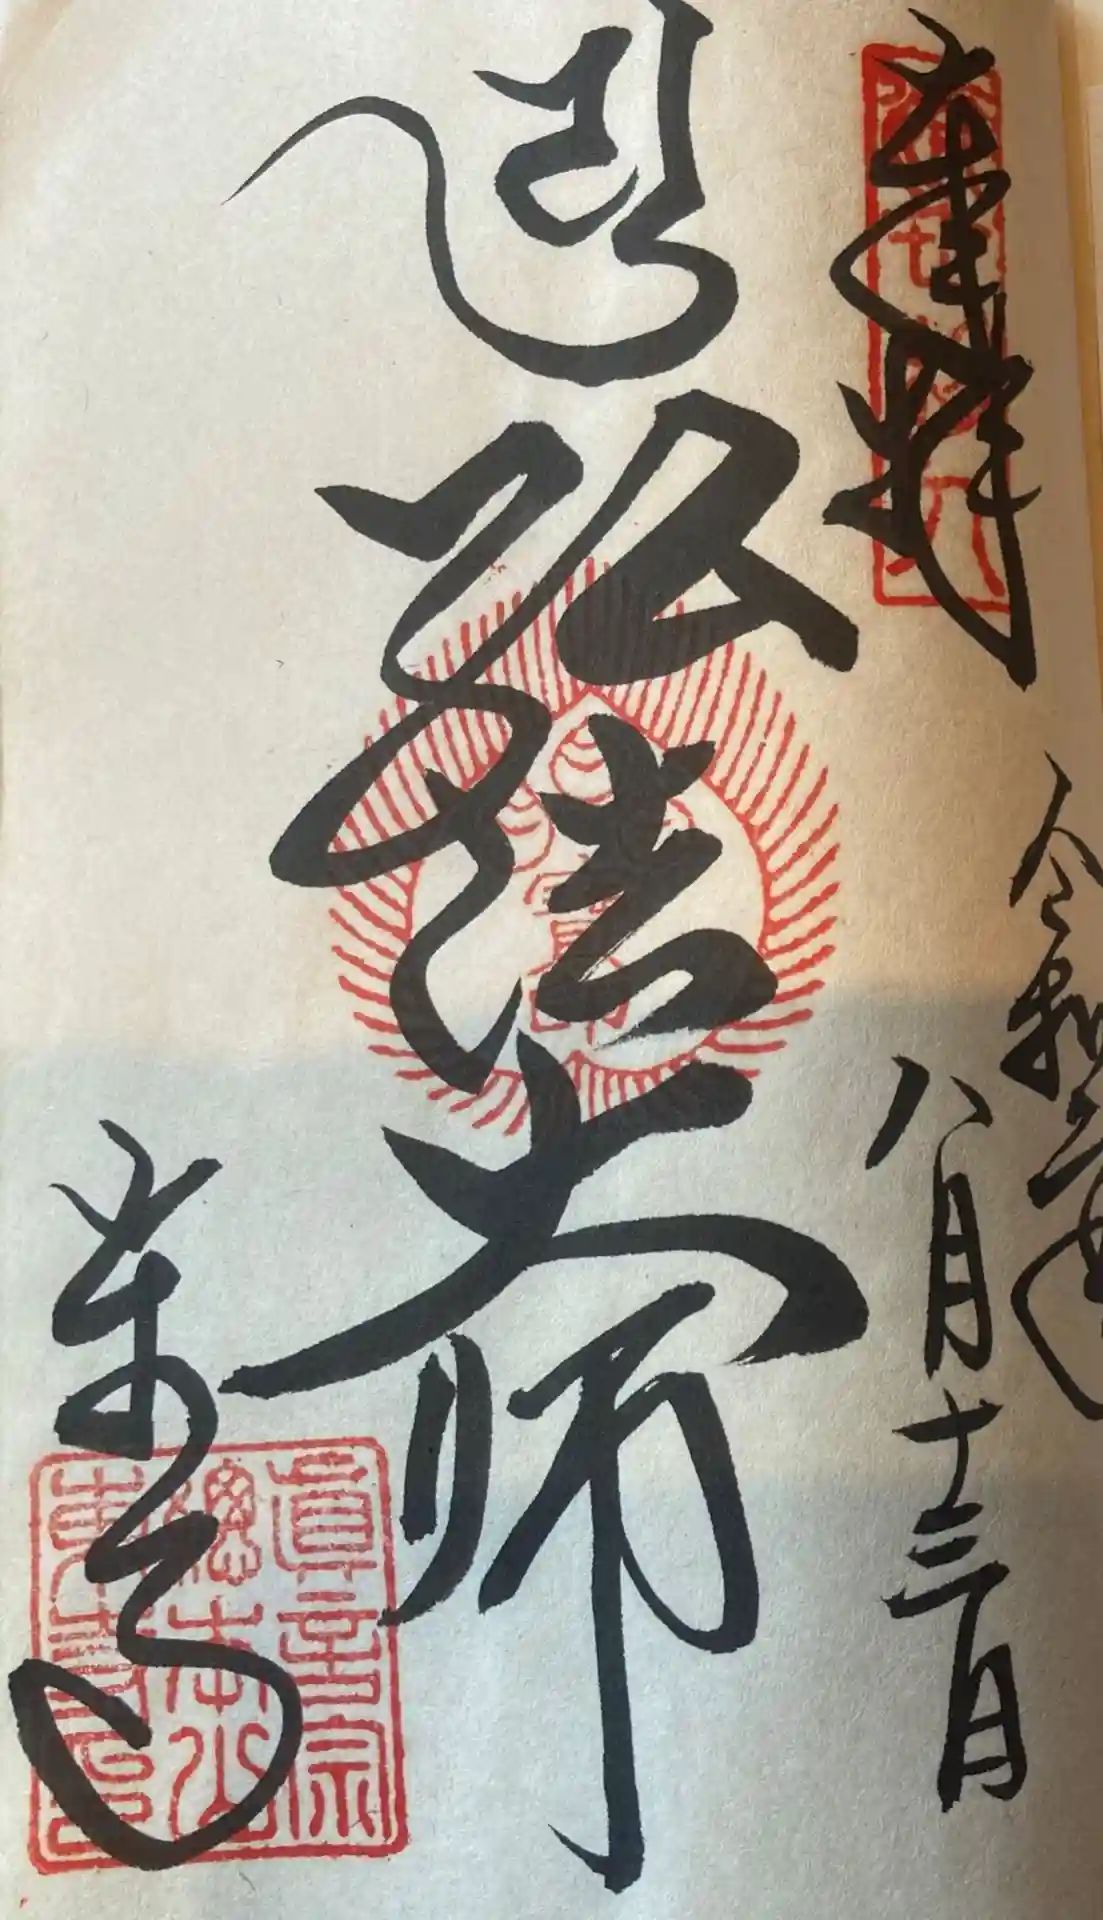 奉拝
令和 年
八月十三日
弘法大師
東寺
眞言宗
總本山
東寺印